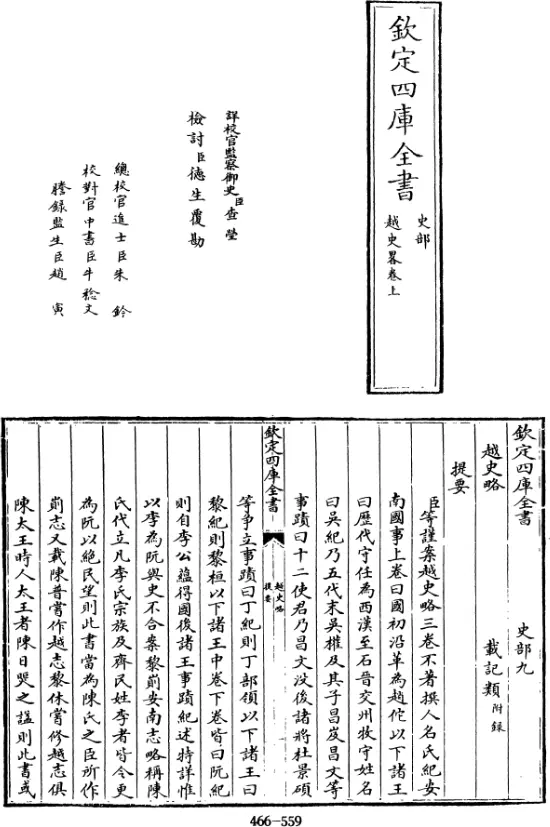 欽定四庫全書
史部
越史畧卷上
詳校官監察御史臣查瑩
檢討臣德生覆勘
總校官進士臣朱鈐
校對官中書臣牛稔文
謄錄監生臣趙寅
欽定四庫全書
史部九
越史略
載記類附錄
提要
臣等謹案越史略三卷不著撰人名氏紀安
南國事上卷曰國初沿革為趙佗以下諸王
曰歷代守任為西漢至石晉交州牧守姓名
曰吳紀乃五代末吳權及其子昌岌昌文等
事蹟曰十二使君乃昌文没後諸將杜景碩
欽定四庫全書
越史略
提要
等爭立事蹟曰丁紀則丁部領以下諸王曰
黎紀則黎桓以下諸王中卷下卷皆曰阮紀
則自李公蘊得國後諸王事蹟紀述特詳惟
以李為阮與史不合案黎崱安南志略稱陳
氏代立凡李氏宗族及齊民姓李者皆令更
為阮以絶民望則此書當為陳氏之臣所作
崱志又載陳普嘗作越志黎休嘗修越志俱
陳太王時人太王者陳日煚之諡則此書或
466-559